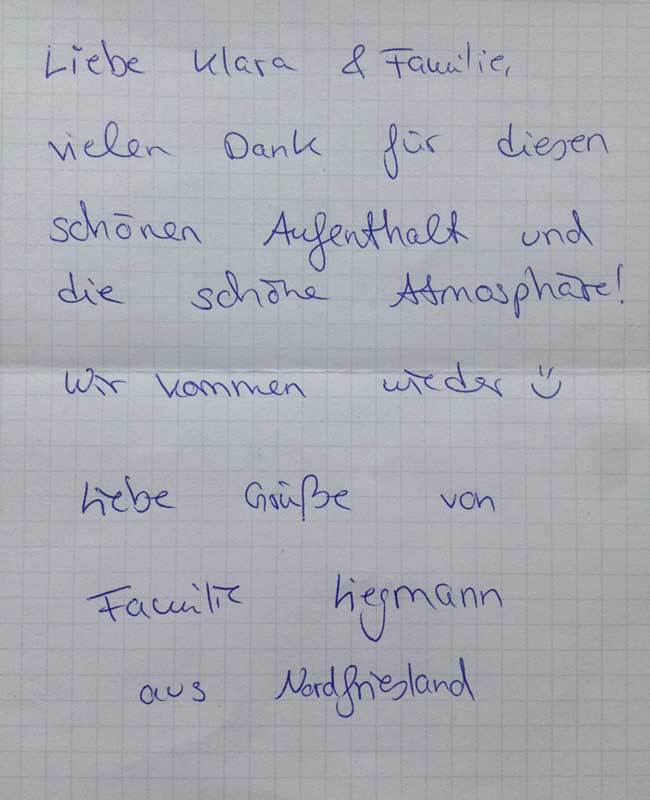 Liebe Klara & Familie,
vielen Dank für diesen
schönen Aufenthalt und
die schöne Atmosphäre!
Wir kommen wieder ☺
Liebe Grüße von
Familie Liegmann
aus Nordfriesland